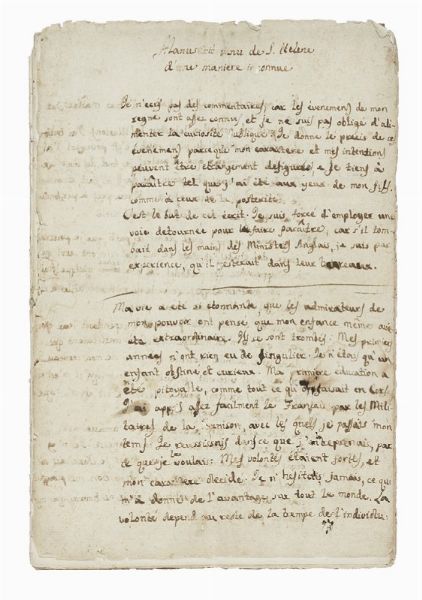 Manuscrit venu de S. Helene
d'une maniere inconnue
Je n'ecris pas des commentaires car les évenemens de mon
regne sont asez connus, et je ne suis pas obligé d'ali-
menter la curiosité publique. Je donne le precis de ces
évenemens parceque mon caractere et mes intentions
peuvent être etrangement defigurés e je tiens à
paraître tel que j'ai été aux yeux de mon fils,
comme à ceux de la posterité.
C'est le but de cet écrit. Je suis forcé d'employer une
voie detournée pour le faire paraître, car s'il tom-
bait dans les mains des Ministres Anglais, je sais par
experience, qu'il resterait dans leur bureaux.
Ma vie a été si étonnante, que les admirateurs de
mon pouvoir ont pensé, que mon enfance même avait
été extraordinaire. Ils se sont trompés. Mes premieres
années n'ont rien eu de singulier. Je n'étais qu'un
enfant obstiné et curieux. Ma premiere éducation a
été pitoyable, comme tout ce qu'on faisait en Corse
J'ai appris asez facilement le Français par les Mili-
taires de la garnison, avec les quels je passais mon
tems. Je reussissais dans ce que j'entreprenais, par-
ce que je le voulais: Mes volontés étaient fortes, et
mon caractere decidé. Je n'hésitais jamais, ce qui
m'a donné de l'avantage sur tout le monde. La
volonté depend au reste de la trempe de l'individu: